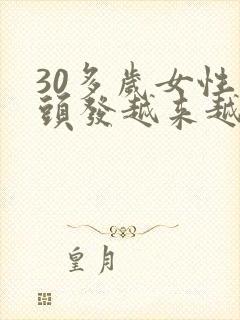 30多歲女性
頭發越來越
皇月